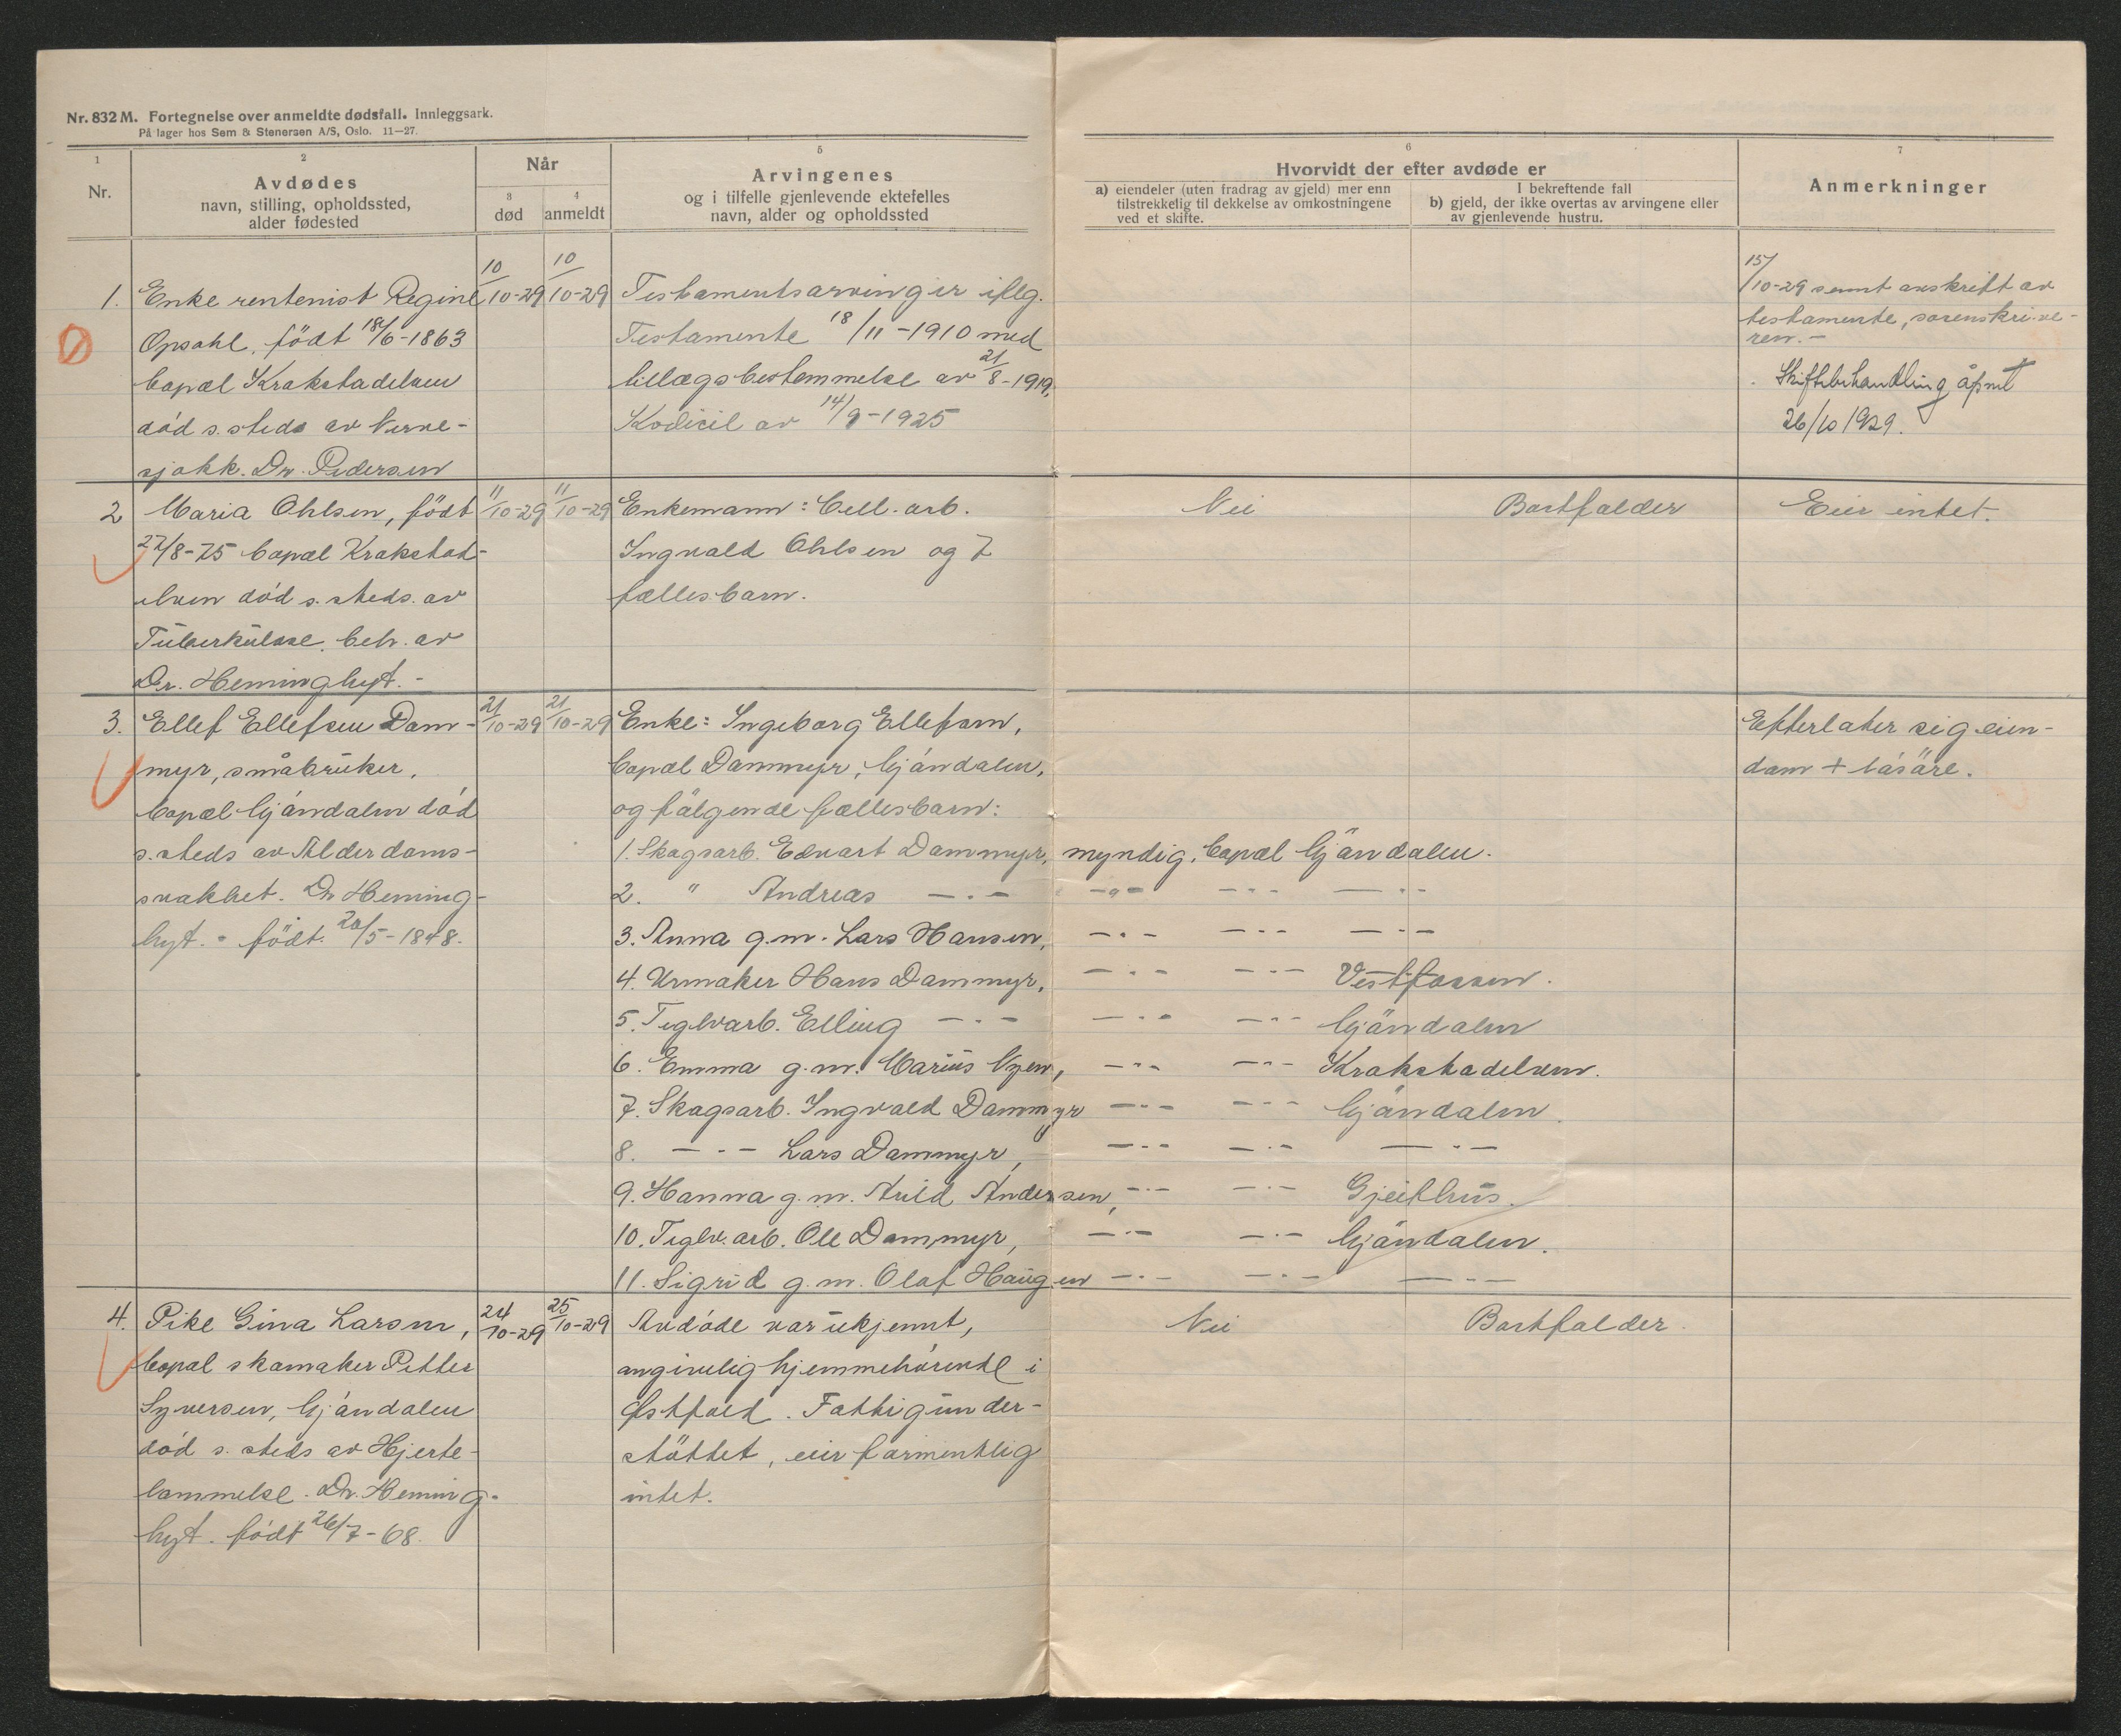 Nr. 832 M. Fortegnelse over anmeldte dødsfall. Innleggsark.
På lager hos Sem & Stenersen A/S, Oslo. 11—27.
1
Nr.
2
Avdødes
navn, stilling, opholdssted,
alder fødested
Når
3
død
4
anmeldt
5
Arvingenes
og i tilfelle gjenlevende ektefelles
navn, alder og opholdssted
6
Hvorvidt der efter avdøde er
a) eiendeler (uten fradrag av gjeld) mer enn
tilstrekkelig til dekkelse av omkostningene
ved et skifte.
I bekreftende fall
b) gjeld, der ikke overtas av arvingene eller
av gjenlevende hustru.
7
Anmerkninger
1. Enke rentenist Regine
Opsahl, født 18/6-1863
bopæl Krokstadelven
død s. steds av Nerve-
sjokk. Dr. Pedersen
10/10-29
10/10-29
Testamentsarvinger iflg.
Testamente 18/11-1910 med
tillægsbestemmelse av 21/8-1919,
Kodicil av 14/9-1925
15/10-29 sennt avskrift av
testamente, sorenskrive-
ren.-
Skiftebehandling åpnet
26/10 1929.
2 Maria Ohlsen, født
27/8-75 bopæl Krokstad-
elven død s. steds. av
Tuberkulose. beh. av
Dr. Heminghyt.-
11/10-29
11/10-29
Enkemann: Cell. arb.
Ingvald Ohlsen og 7
fællesbarn.
Nei
Bortfalder
Eier intet.
3. Ellef Ellefsen Dam-
myr, småbruker,
bopæl Gjøndalen død
s. steds av Alderdoms-
svakhet. Dr Heming-
hyt. - født. 20/5-1848.
21/10-29
21/10-29
Enke: Ingeborg Ellefsen,
bopæl Dammyr, Mjøndalen,
og følgende fællesbarn:
1. Skogsarb. Edvart Dammyr, myndig, bopæl Mjøndalen.
2. " Andreas —.— —"— —.— —.—
3. Anna g.m. Lars Hansen, —.— —.— —.—
4. Urmaker Hans Dammyr, —.— —.— Vestfossen.
5. Teglvarb. Elling —.— —.— —.— Mjøndalen
6. Emma g.m. Marius Nyen, —.— —.— Krokstadelven.
7. Skogsarb. Ingvald Dammyr —.— —.— Mjøndalen.
8. —.— Lars Dammyr, —.— —.— —.—
9. Hanna g.m. Arild Andersen, —.— —.— Gjeithus.
10. Teglv. arb. Ole Dammyr, —.— —.— Mjøndalen.
11. Sigrid g.m. Olaf Haugen —.— —.— —.—
Efterlater sig eien-
dom + løsøre.
4. Pike Gina Larsen,
bopæl skomaker Petter
Syversen, Mjøndalen
død s. steds av Hjerte-
lammelse. Dr. Heming-
hyt. født 26/7-68.
24/10-29
25/10-29
Avdøde var ukjennt,
angivelig hjemmehørende i
Østfold. Fattigunder-
støttet, eier formentlig
intet.
Nei
Bortfalder.